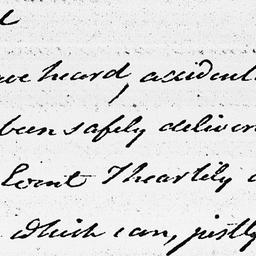 ve heard, accident
been safely deliver
Event I heartily
which can, justly